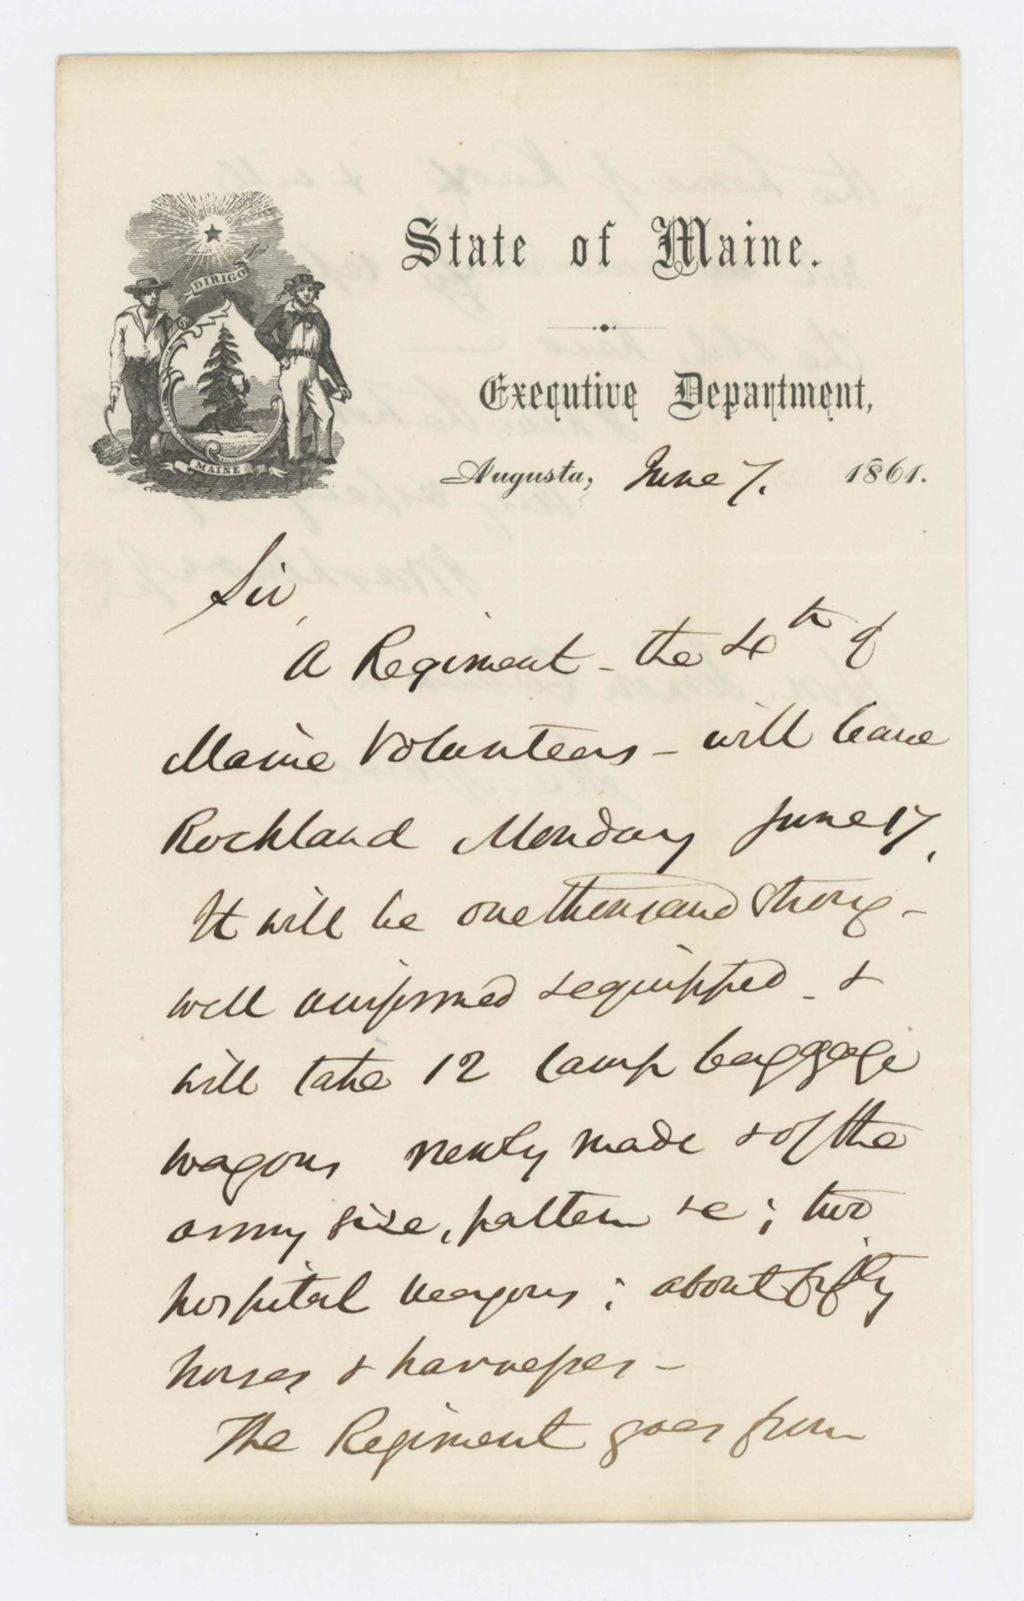 DIRIGO
MAINE
State of Maine.
Executive Department,
Augusta, June 7. 1861.
Sir,
A Regiment - the 4th of
Maine Volunteers - will leave
Rockland Monday June 17.
It will be one thousand strong -
well uniformed & equipped - &
will take 12 camp baggage
wagons newly made & of the
army size, pattern &c; two
hospital wagons; about fifty
horses & harnesses -
The Regiment goes from